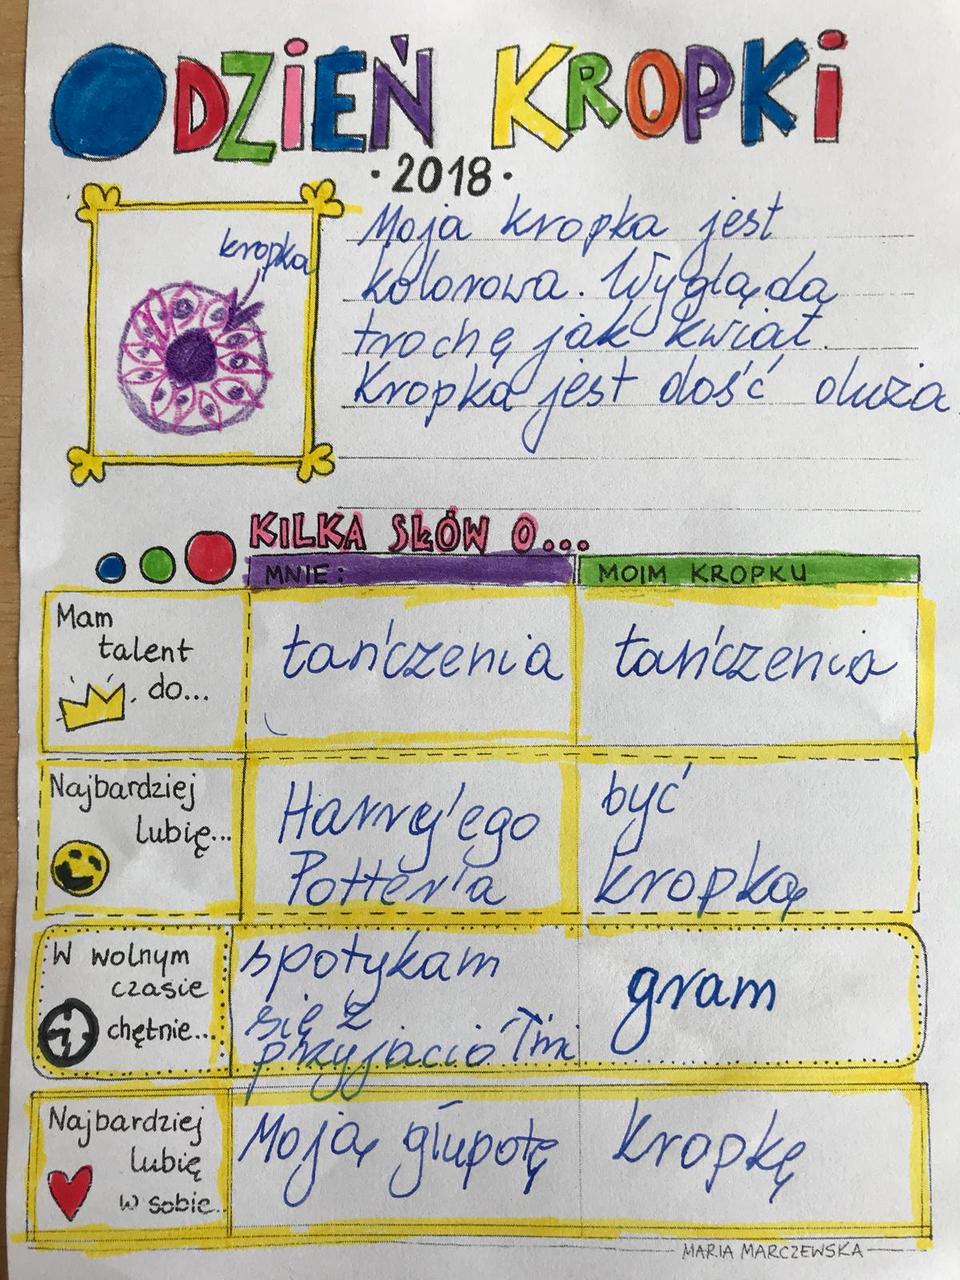 DZIEŃ KROPKI
·2018·
kropka
Moja kropka jest
kolorowa. Wygląda
trochę jak kwiat.
Kropka jest dość duża.
KILKA SŁÓW O...
MNIE:
MOIM KROPKU
Mam
talent
do...
tańczenia
tańczenia
Najbardziej
lubię...
Harry'ego
Potter'a
być
kropką
W wolnym
czasie
chętnie...
spotykam
się z
przyjaciółmi
gram
Najbardziej
lubię
w sobie..
Moją głupotę
kropkę
MARIA MARCZEWSKA